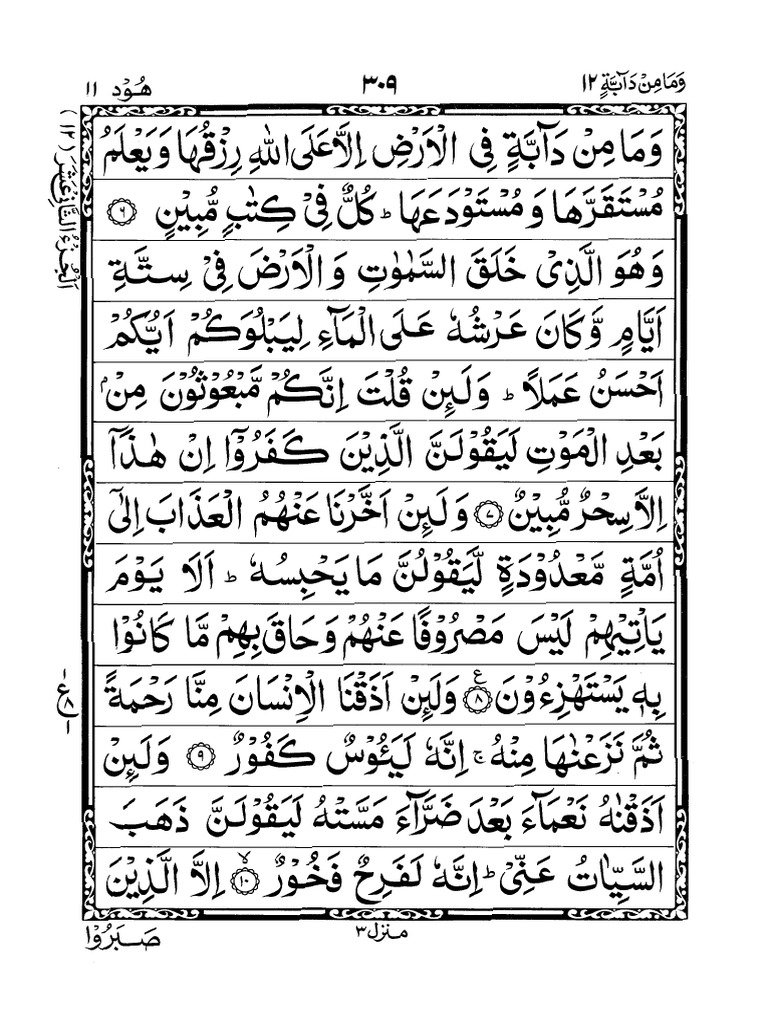 وَمَا مِنْ دَآبَّةٍ ١٢
٣٠٩
هُوْد ١١
وَمَا مِنْ دَآبَّةٍ فِي الْاَرْضِ اِلَّا عَلَى اللّٰهِ رِزْقُهَا وَيَعْلَمُ
مُسْتَقَرَّهَا وَمُسْتَوْدَعَهَا ؕ كُلٌّ فِيْ كِتٰبٍ مُّبِيْنٍ ۝٦
وَهُوَ الَّذِيْ خَلَقَ السَّمٰوٰتِ وَالْاَرْضَ فِيْ سِتَّةِ
اَيَّامٍ وَّكَانَ عَرْشُهٗ عَلَى الْمَآءِ لِيَبْلُوَكُمْ اَيُّكُمْ
اَحْسَنُ عَمَلًا ؕ وَلَىِٕنْ قُلْتَ اِنَّكُمْ مَّبْعُوْثُوْنَ مِنْۢ
بَعْدِ الْمَوْتِ لَيَقُوْلَنَّ الَّذِيْنَ كَفَرُوْٓا اِنْ هٰذَآ
اِلَّا سِحْرٌ مُّبِيْنٌ ۝٧ وَلَىِٕنْ اَخَّرْنَا عَنْهُمُ الْعَذَابَ اِلٰٓى
اُمَّةٍ مَّعْدُوْدَةٍ لَّيَقُوْلُنَّ مَا يَحْبِسُهٗ ؕ اَلَا يَوْمَ
يَاْتِيْهِمْ لَيْسَ مَصْرُوْفًا عَنْهُمْ وَحَاقَ بِهِمْ مَّا كَانُوْا
بِهٖ يَسْتَهْزِءُوْنَ ۝٨ ع وَلَىِٕنْ اَذَقْنَا الْاِنْسَانَ مِنَّا رَحْمَةً
ثُمَّ نَزَعْنٰهَا مِنْهُ ۚ اِنَّهٗ لَيَـُٔوْسٌ كَفُوْرٌ ۝٩ وَلَىِٕنْ
اَذَقْنٰهُ نَعْمَآءَ بَعْدَ ضَرَّآءَ مَسَّتْهُ لَيَقُوْلَنَّ ذَهَبَ
السَّيِّاٰتُ عَنِّيْ ؕ اِنَّهٗ لَفَرِحٌ فَخُوْرٌ ۝١٠ۙ اِلَّا الَّذِيْنَ
منزل ٣
صَبَرُوْا
اَلْجُزْءُ الثَّانِيْ عَشَرَ (١٢)
ع ٨